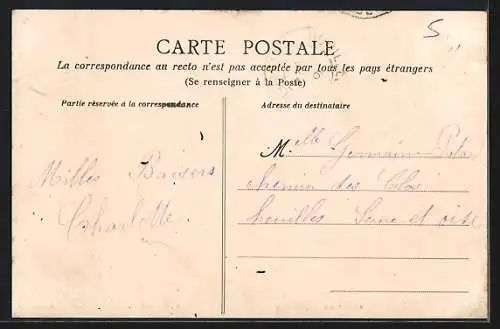 5
CARTE POSTALE
La correspondance au recto n'est pas acceptée par tous les pays étrangers
(Se renseigner à la Poste)
Partie réservée à la correspondance
Adresse du destinataire
Milles Baisers
Charlotte
M.elle Germaine
chemin des Clos
houilles Seine et oise